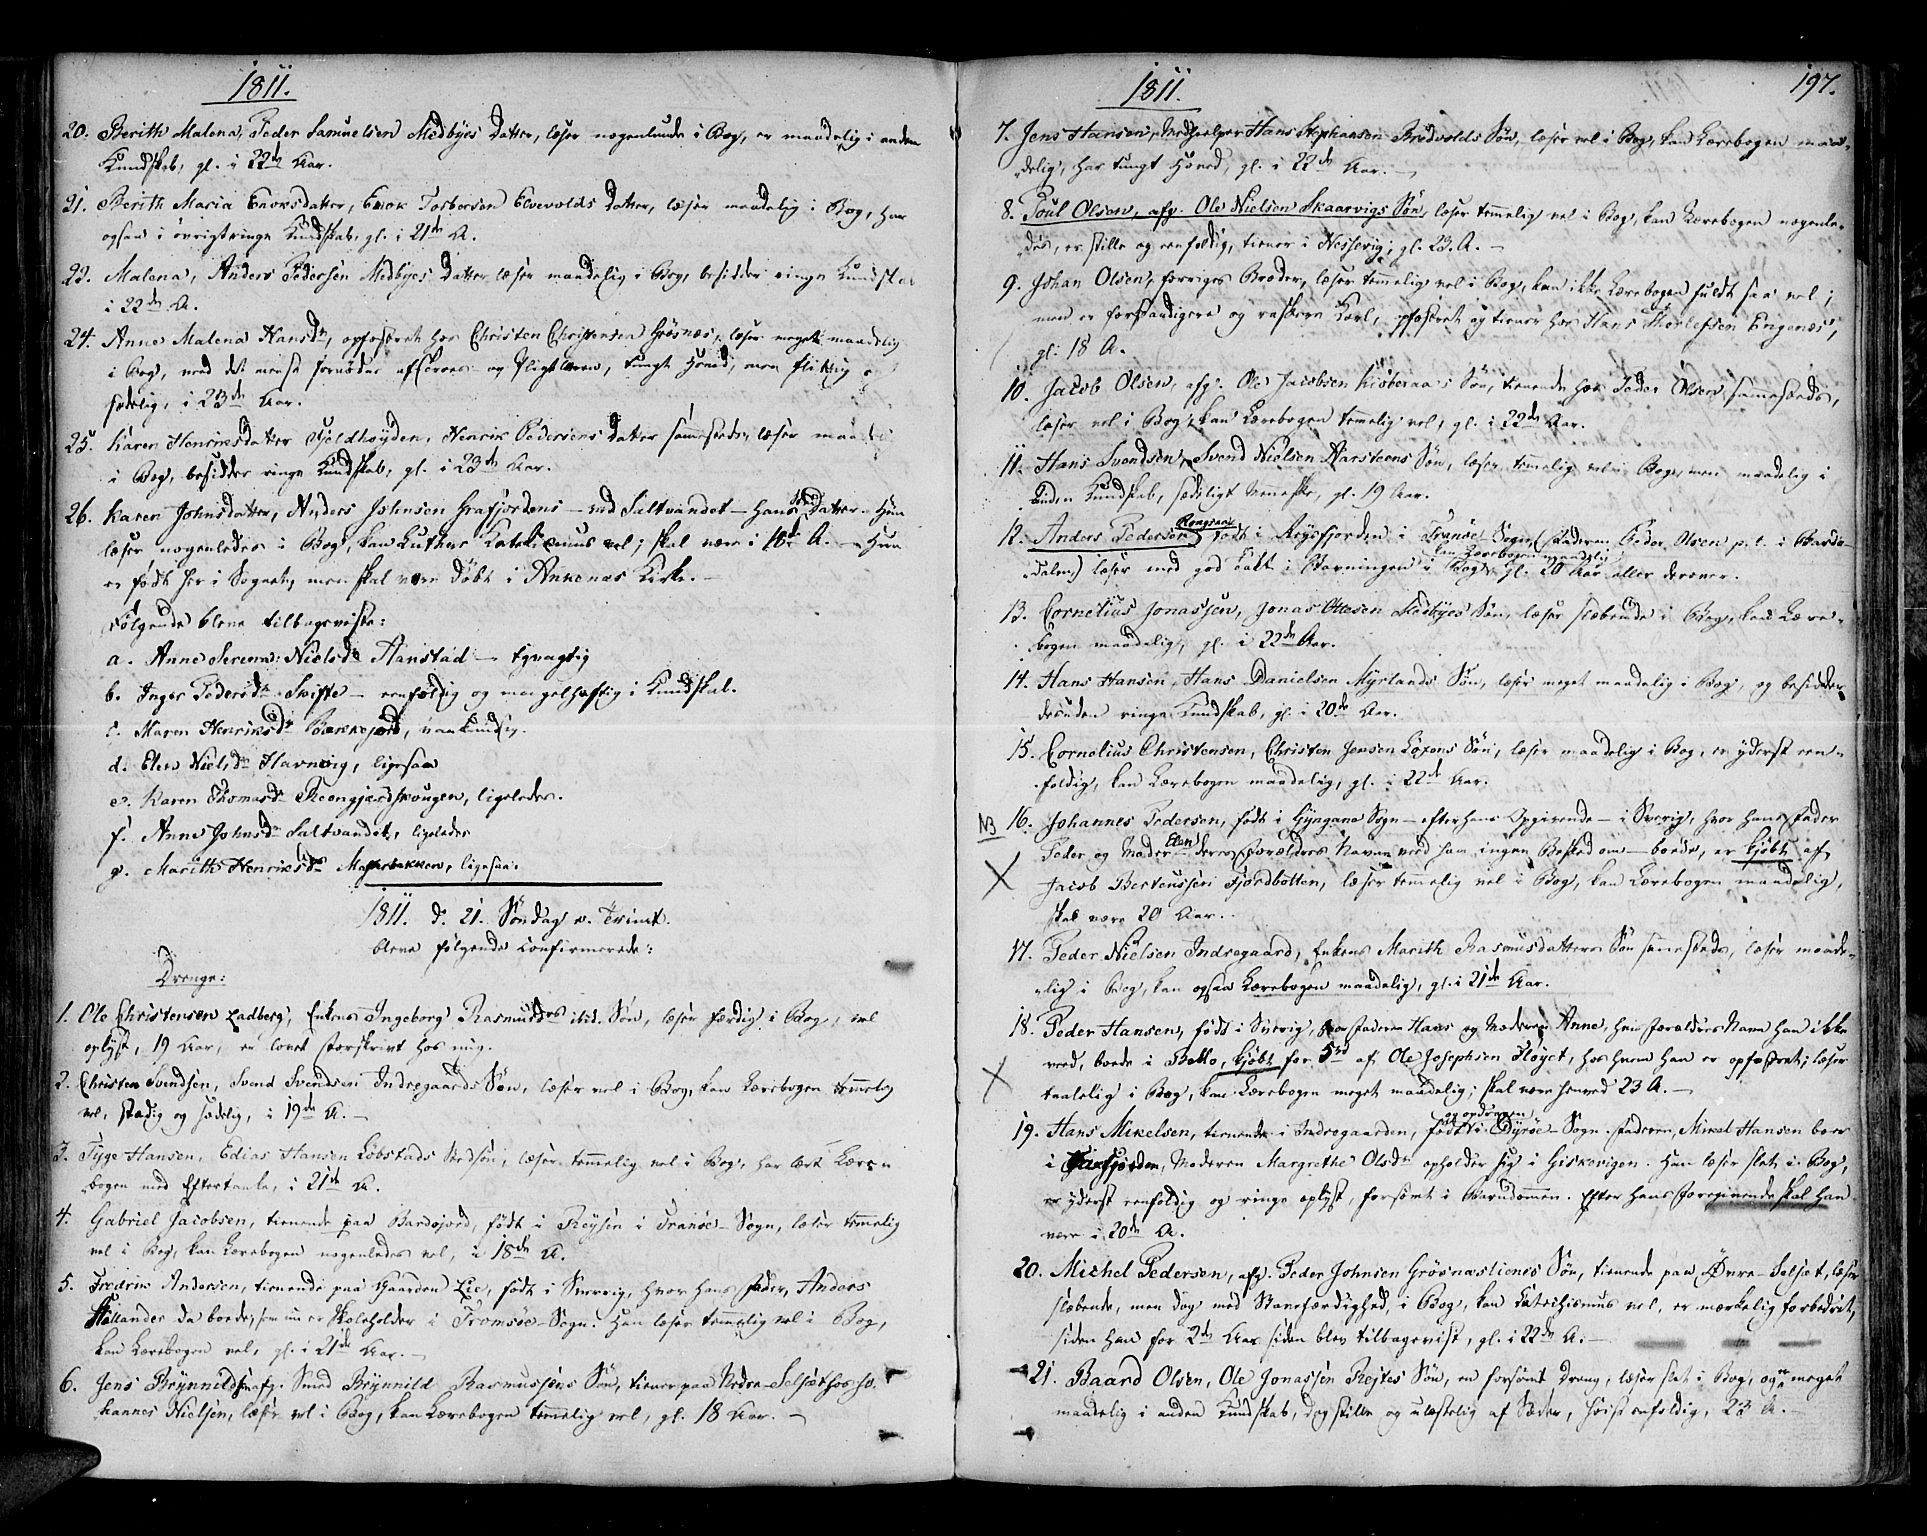 1811.
20. Berith Malena, Peder Samuelsen Medbyes Datter, læser nogenlunde i Bog, er maadelig i anden
Kundskab, gl. i 22de Aar.
21. Berith Maria Enoksdatter, Enok Torbersen Elvevolds Datter, læser maadelig i Bog, har
ogsaa i øvrigt ringe Kundskab, gl. i 21de A.
22. Malena, Anders Pedersen Medbyes Datter læser maadelig i Bog, besidder ringe Kundskab
i 22de A.
24. Anne Malena Hansdr, opfostret hos Christen Christensen Grøsnæs, læser meget maadelig
i Bog, med det meest fornødne af Troes- og Pligtlæren, tungt Hoved, men flittig og
sædelig, i 23de Aar.
25. Karen Henriksdatter Fjeldhøyden, Henrik Pedersens Datter sammesteds, læser maadelig
i Bog, besidder ringe Kundskab, gl. i 23de Aar.
26. Karen Johnsdatter, Anders Johnsen Grafjordens - ved Saltvandet - Hans Datter - Hun
læser nogenledes i Bog, kan Luthers Katekismus vel; skal være i 18de A. - Hun
er født her i Sognet, men skal være døbt i Ankenæs Kirke. -
Følgende bleve tilbageviiste:
a. Anne Serena Nielsdr Aanstad - egnagtig
b. Inger Pedersdr Svifte - eenfoldig og mangelhaftig i Kundskab.
c. Maren Henriksdr Bakkejord, vankundig.
d. Elen Nielsdr Havnvig, ligesaa
e. Karen Thomasdr Krongjordskougen, ligeledes.
f. Anne Johnsdr Saltvandet, ligeledes
g. Marith Henriksdr Mayerbakken, ligesaa.
1811. d. 21. Søndag e. Trinit.
bleve følgende Confirmerede:
Drenge:
1. Ole Christensen Ladberg, Enken Ingeborg Rasmusdrs ibid. Søn, læser færdig i Bog, vel
oplyst, 19 Aar, er lovet Storskrivt hos mig.
2. Christen Svendsen, Svend Svendsen Indregaards Søn, læser vel i Bog, kan Lærebogen temmelig
vel, stadig og sædelig, i 19de A. -
3. Tyge Hansen, Edias Hansen Løbstads Stedsøn, læser temmelig vel i Bog, har lært Lære-
bogen med Eftertanke, i 21de A.
4. Gabriel Jacobsen, tienende paa Bardojord, født i Reysen i Tranøe-Sogn, læser temmelig
vel i Bog, kan Lærebogen nogenledes vel, i 18de A.
5. Fredrik Andersen, tienende paa Gaarden Lie, født i Sverrig, hvor hans Fader, Anders
Hållander da boede, som nu er Skoleholder i Tromsøe-Sogn. Han læser temmelig vel i Bog,
kan Lærebogen vel, gl. i 21de Aar. -
6. Jens Brynnildsen afg. Smed Brynnild Rasmussens Søn, tiener paa Nedre-Selset hos Jo-
hannes Nielsen, læser vel i Bog, kan Lærebogen temmelig vel, gl. 18 Aar. -
1811.
197.
7. Jens Hansen, Medhjelper Hans Stephansen Bredvolds Søn, læser vel i Bog, kan Lærebogen maa-
delig, har tungt Hoved, gl. i 22de Aar. -
8. Poul Olsen, afg. Ole Nielsen Skaarvigs Søn, læser temmelig vel i Bog, kan Lærebogen nogenle-
des, er stille og eenfoldig, tiener i Nessevig, gl. 23. A. -
9. Johan Olsen, forriges Broder, læser temmelig vel i Bog, kan ikke Lærebogen fuldt saa vel;
men er forstandigere og raskere Karl, opfostret og tiener hos Hans Thorlefsen Engenæs,
gl. 18 A.
10. Jacob Olsen, afg. Ole Jacobsen Kisteraa's Søn, tienende hos Peder Olsen sammesteds,
læser vel i Bog, kan Lærebogen temmelig vel, gl. i 22de Aar.
11. Hans Svendsen, Svend Nielsen Harsteens Søn, læser temmelig vel i Bog, men maadelig i
anden Kundskab, sædeligt Menneske, gl. 19 Aar.
12. Anders Pedersen Kongsvi, født i Reysfjorden i Tranøe Sogn, (Faderen Peder Olsen p.t. i Bardo-
dalen) læser med god Takt i Stavningen i Bog, kan Lærebogen maadelig gl. 20 Aar eller derover.
13. Cornelius Jonassen, Jonas Ottesen Medbyes Søn, læser slæbende i Bog, kan Lære-
bogen maadelig, gl. i 22de Aar.
14. Hans Hansen, Hans Danielsen Myrlands Søn, læser meget maadelig i Bog, og besidder
desuden ringe Kundskab, gl. i 20de Aar.
15. Cornelius Christensen, Christen Jensen Loxens Søn, læser maadelig i Bog, er yderst een-
foldig, kan Lærebogen maadelig, gl. i 22de Aar.
NB 16. Johannes Pedersen, født i Gyngane Sogn - efter hans Opgivende - i Sverig, hvor hans Fader
Peder og Moder Elen - deres Forældres Navne veed ham ingen Besked om - boede, er kjøbt af
Jacob Berteussen Fjordbotten, læser temmelig vel i Bog, kan Lærebogen maadelig,
skal være 20 Aar. -
17. Peder Nielsen Indregaard, Enkens Marith Rasmusdatters Søn sammesteds, læser maade-
lig i Bog, kan ogsaa Lærebogen maadelig, gl. i 21de Aar.
18. Peder Hansen, født i Sverig, hvor Faderen Hans og Moderen Anne, hvis Forældres Navn han ikke
veed, boede i Betto, kjøbt for 5rd af Ole Josephsen Fløyet, hos hvem han er opfostret; læser
taalelig i Bog, kan Lærebogen meget maadelig; skal være henved 23 A. -
19. Hans Mikelsen, tienende i Indregaarden, født og opdragen i Dyrøe-Sogn. Faderen, Mikel Hansen boer
i Faxfjorden, Moderen Margrethe Olsdr opholder sig i Giskevigen. Han læser slet i Bog,
er yderst eenfoldig og ringe oplyst, forsømt i Barndommen. Efter hans Foregivende skal han
være i 20de A.
20. Michel Pedersen, afg. Peder Johnsen Grøsnæslienes Søn, tienende paa Øvre-Selset, læser
slæbende, men dog med Stavefærdighed, i Bog, kan Katechismus vel, er mærkelig forbedret,
siden han for 2de Aar siden blev tilbagevist, gl. i 22de A. -
21. Baard Olsen, Ole Jonassen Røjtes Søn, en forsømt Dreng, læser slet i Bog, og er meget
maadelig i anden Kundskab, dog stille og ulastelig af Sæder, høist eenfoldig, 23 A. -